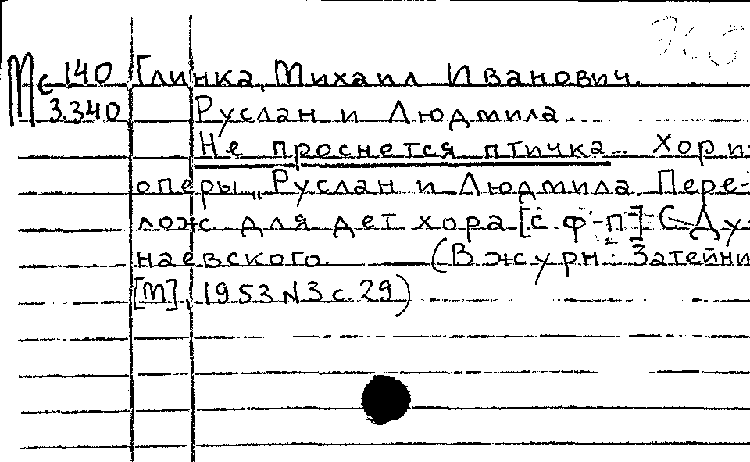 Мс 140 Глинка, Михаил Иванович.
3.340 Руслан и Людмила.
Не проснется птичка. Хор из
оперы „Руслан и Людмила. Пере-
лож для дет хора [с ф-п] С Ду-
наевского. (В журн: Затейни
[М], 1953 №3 с. 29)